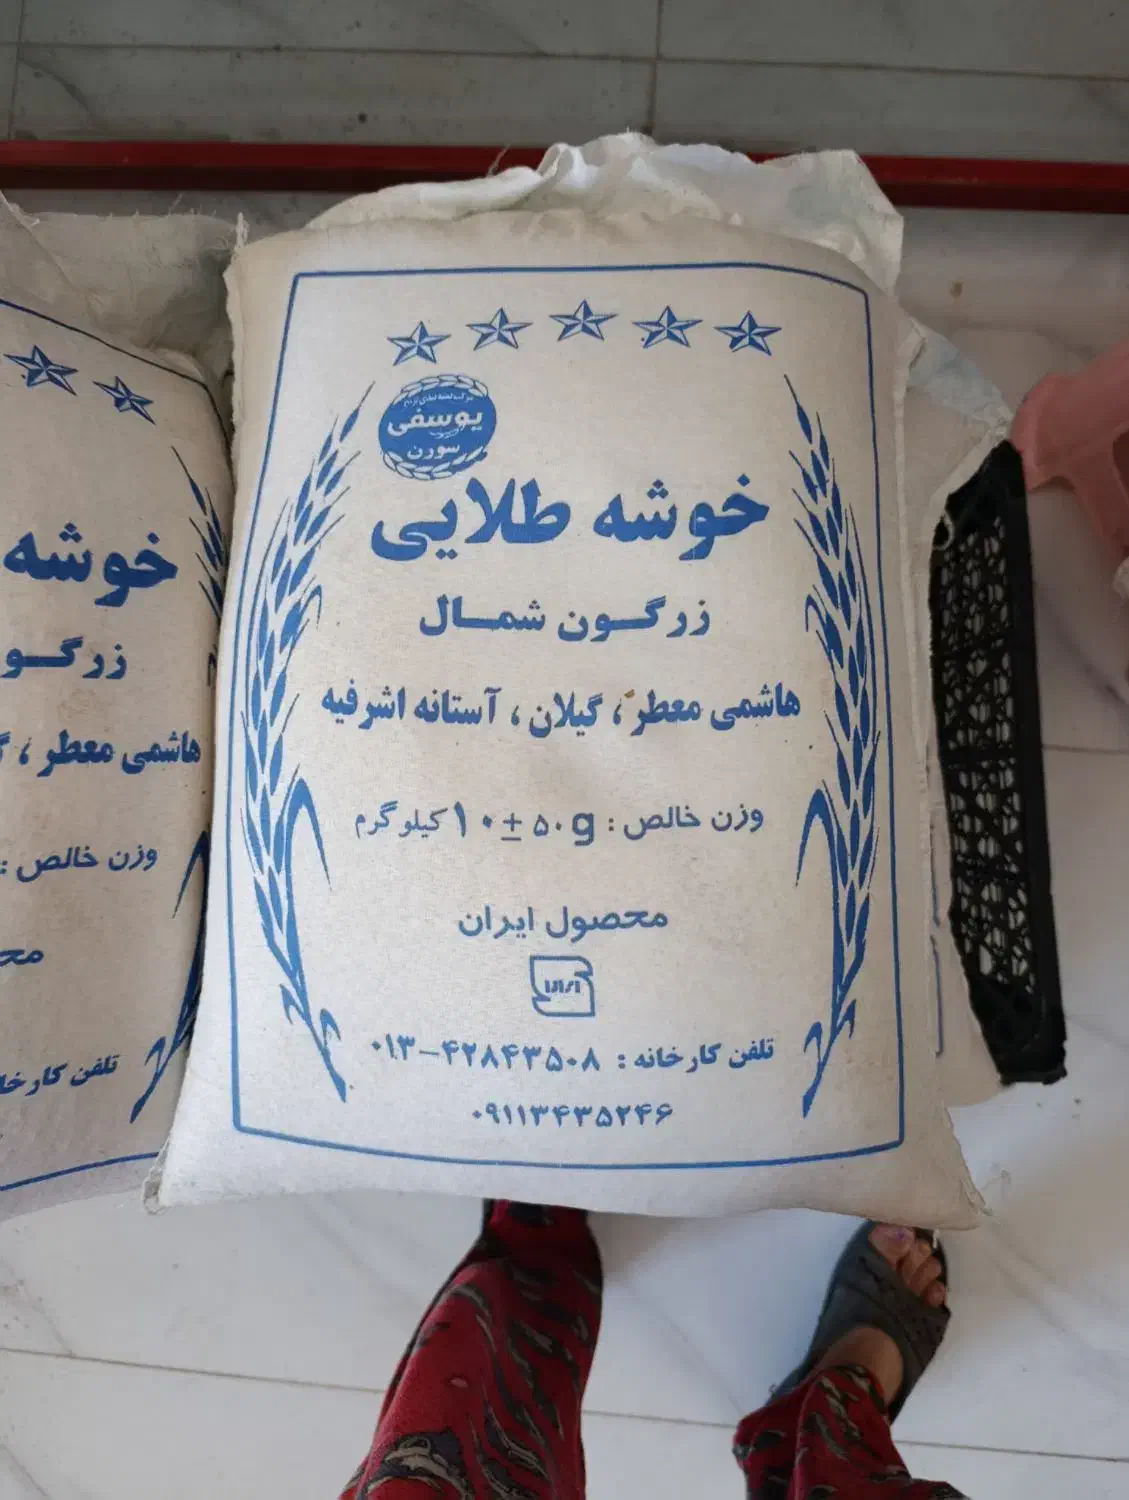 یوسفی
سورن
خوشه طلایی
زرگون شمال
هاشمی معطر ، گیلان ، آستانه اشرفیه
وزن خالص : ۱۰ ± ۵۰g کیلوگرم
محصول ایران
تلفن کارخانه : ۰۱۳-۴۲۸۴۳۵۰۸
۰۹۱۱۳۴۳۵۲۴۶
خوشه
هاشمی معطر ،
وزن خالص :
تلفن